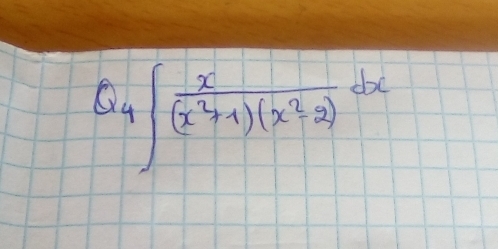 Q4 ∫ x/((x²+1)(x²-2)) dx